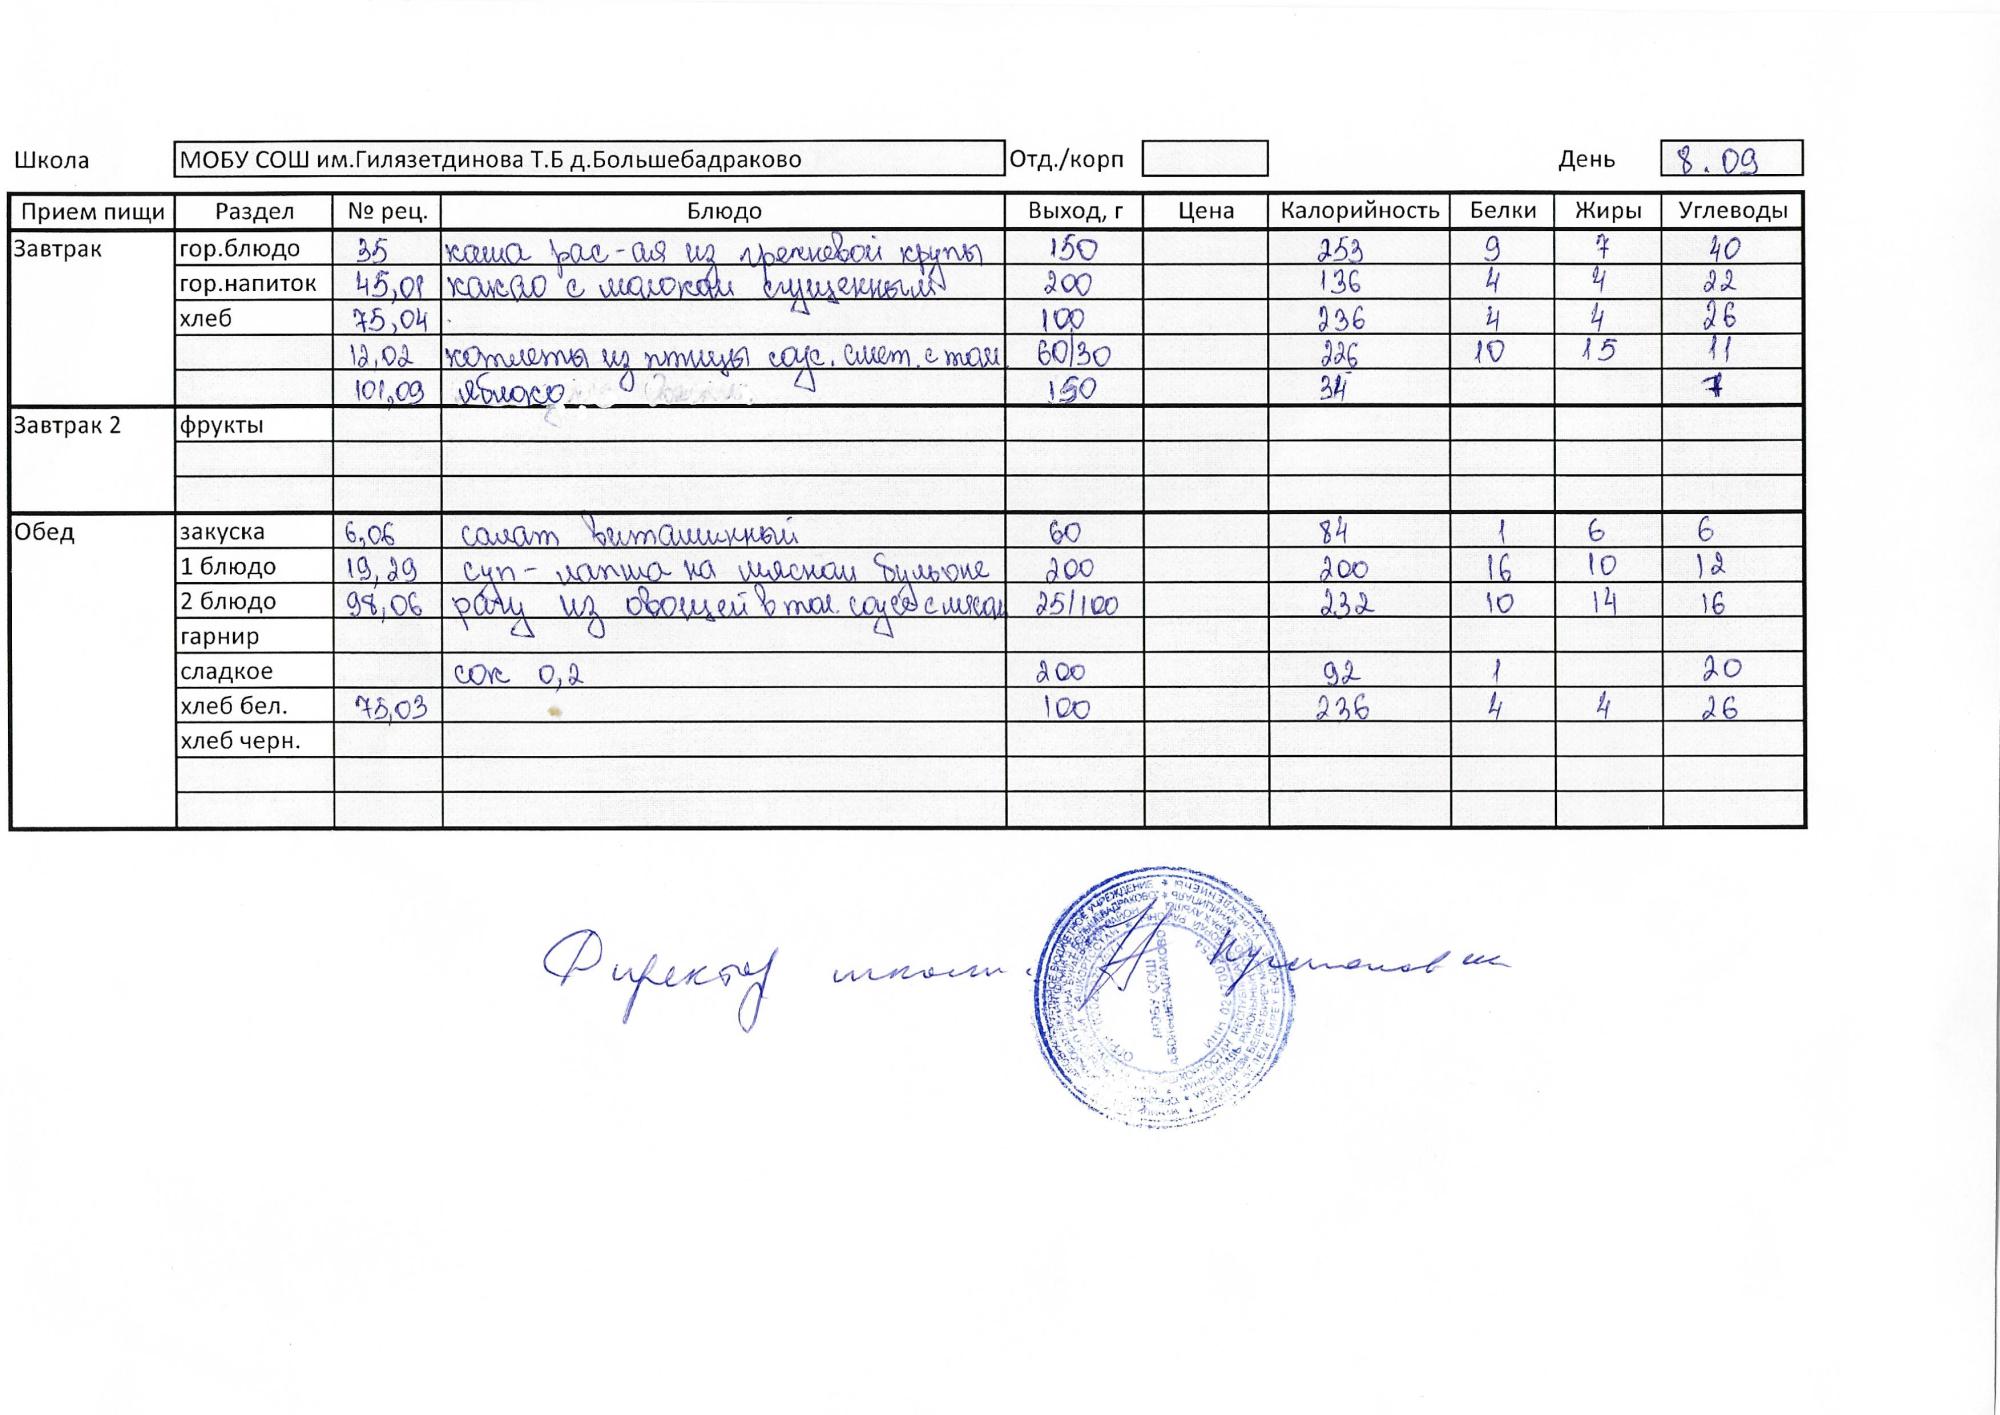 Школа МОБУ СОШ им.Гилязетдинова Т.Б д.Большебадраково Отд./корп День 8.09
Прием пищи Раздел № рец. Блюдо Выход, г Цена Калорийность Белки Жиры Углеводы
Завтрак гор.блюдо 35 каша рас-ая из гречневой крупы 150 253 9 7 40
гор.напиток 45,01 какао с молоком сгущенным 200 136 4 4 22
хлеб 75,04 100 236 4 4 26
12,02 котлеты из птицы соус. смет. с том. 60/30 226 10 15 11
101,09 яблоко 150 34 7
Завтрак 2 фрукты
Обед закуска 6,06 салат витаминный 60 84 1 6 6
1 блюдо 19,29 суп-лапша на мясном бульоне 200 200 16 10 12
2 блюдо 98,06 рагу из овощей в том. соусе с мясом 25/100 232 10 14 16
гарнир
сладкое сок 0,2 200 92 1 20
хлеб бел. 75,03 100 236 4 4 26
хлеб черн.
Директор школы
МОБУ СОШ